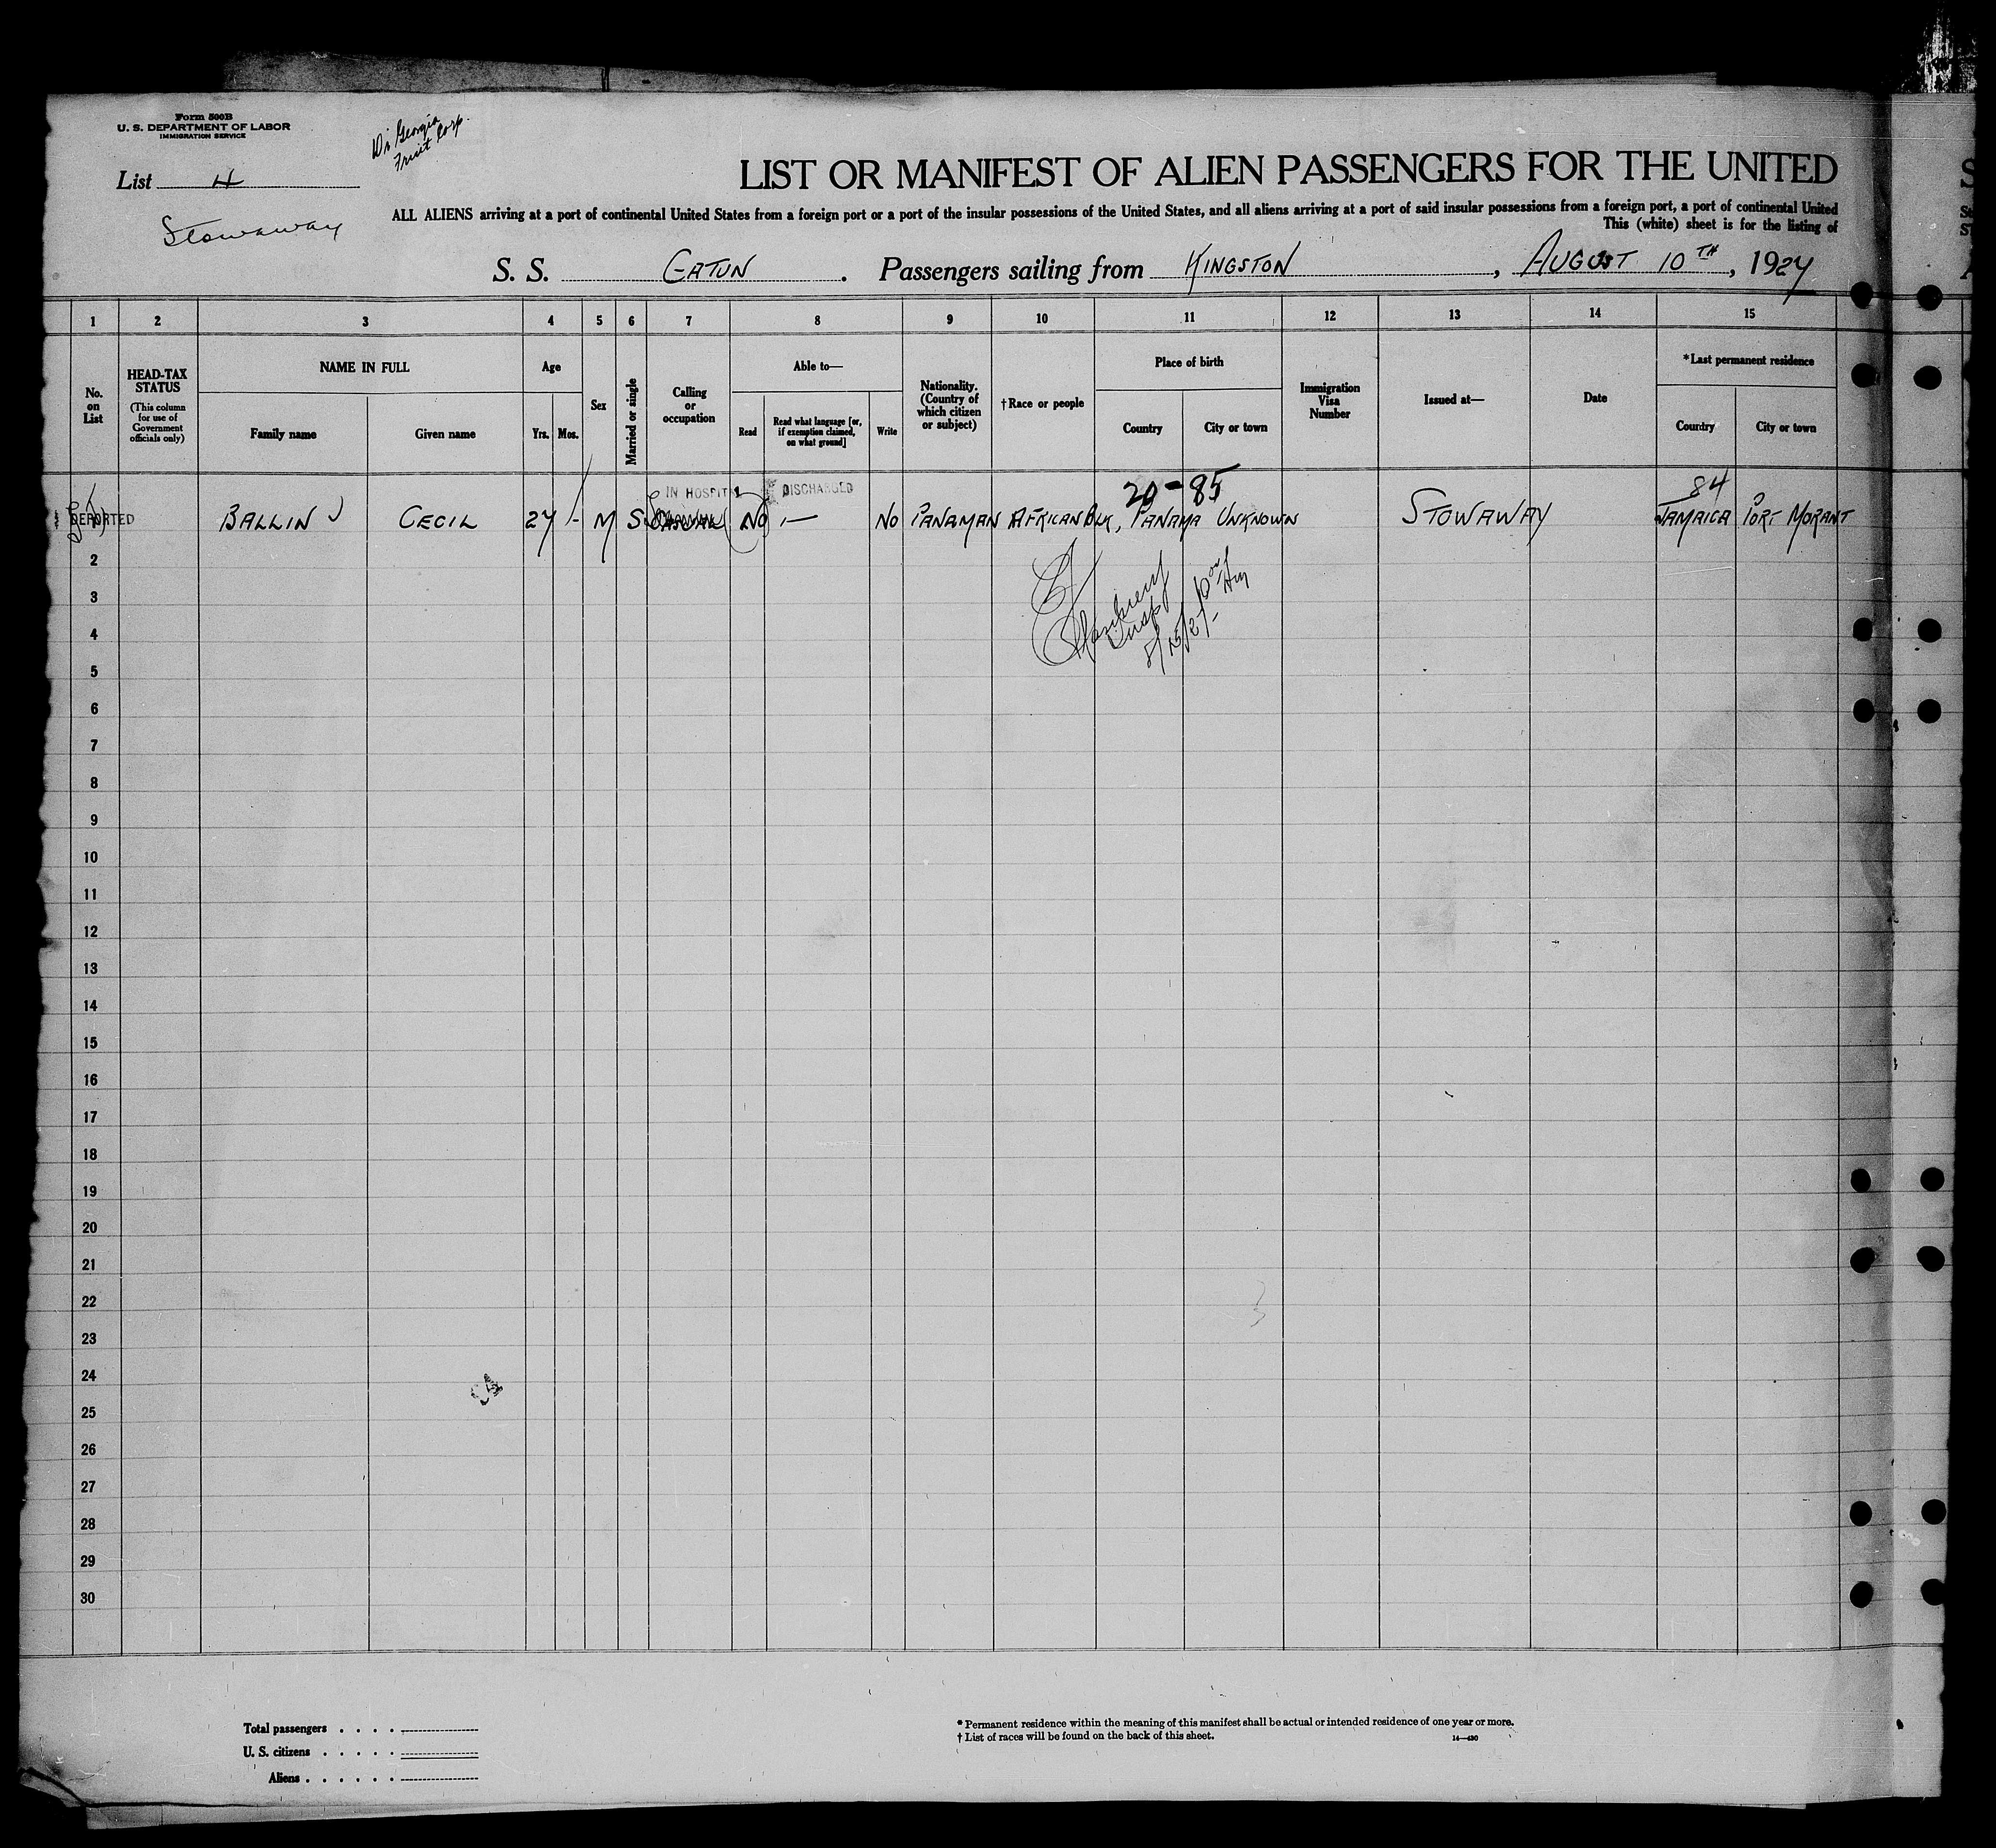 Form 500B
U. S. DEPARTMENT OF LABOR
IMMIGRATION SERVICE
Di Georgia
Fruit Corp.
List 4
Stowaway
LIST OR MANIFEST OF ALIEN PASSENGERS FOR THE UNITED
ALL ALIENS arriving at a port of continental United States from a foreign port or a port of the insular possessions of the United States, and all aliens arriving at a port of said insular possessions from a foreign port, a port of continental United
This (white) sheet is for the listing of
S. S. GATUN. Passengers sailing from KINGSTON, AUGUST 10TH, 1927
1 2 3 4 5 6 7 8 9 10 11 12 13 14 15
No. on List
HEAD-TAX STATUS
(This column for use of Government officials only)
NAME IN FULL
Family name
Given name
Age
Yrs. Mos.
Sex
Married or single
Calling or occupation
Able to—
Read
Read what language [or, if exemption claimed, on what ground]
Write
Nationality. (Country of which citizen or subject)
†Race or people
Place of birth
Country
City or town
Immigration Visa Number
Issued at—
Date
*Last permanent residence
Country
City or town
IN HOSPITAL DISCHARGED 20-85 84
DEPORTED BALLIN CECIL 27 - M S No — No PANAMAN AFRICAN BLK, PANAMA UNKNOWN STOWAWAY JAMAICA PORT MORANT
2
3
4
5
6
7
8
9
10
11
12
13
14
15
16
17
18
19
20
21
22
23
24
25
26
27
28
29
30
8/15/27
Total passengers . . . .
U. S. citizens . . . . .
Aliens . . . . . .
* Permanent residence within the meaning of this manifest shall be actual or intended residence of one year or more.
† List of races will be found on the back of this sheet.
14—430